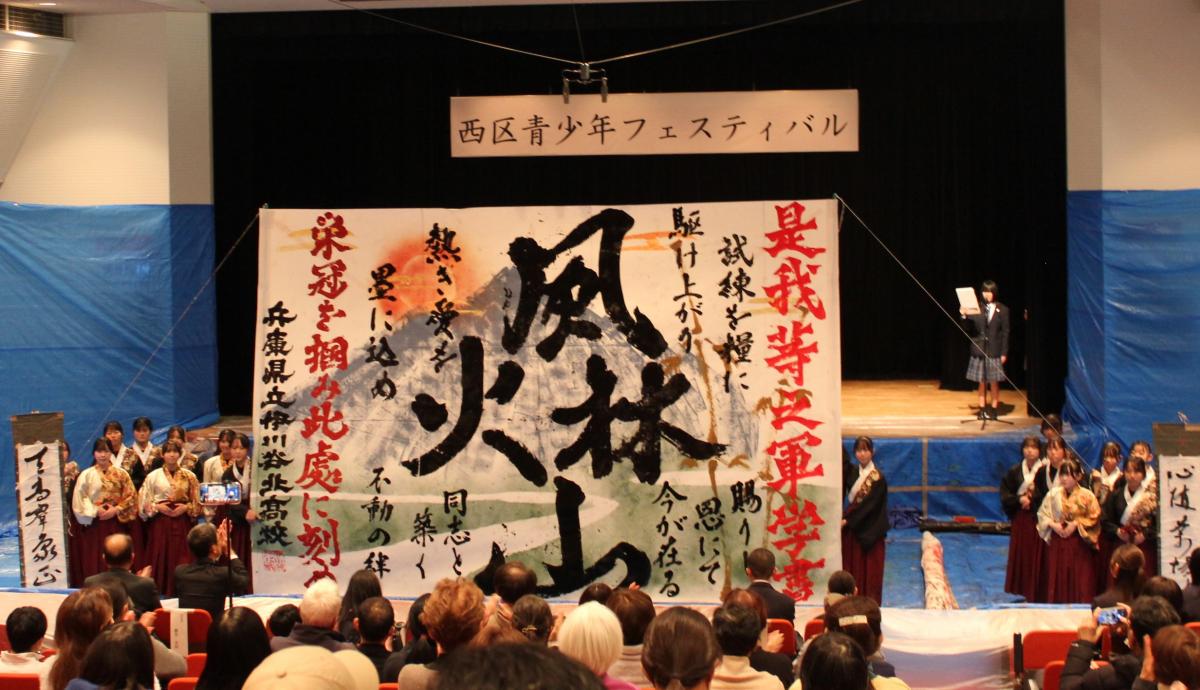 西区青少年フェスティバル
是我等之軍学書
試練を糧に
駆け上がり
賜りし
恩にて
今が在る
風林火山
熱き愛を
墨に込め
同志と
築く
不動の絆
栄冠を掴み此處に刻
兵庫県立伊川谷北高校
心随萬境
天高羣象正